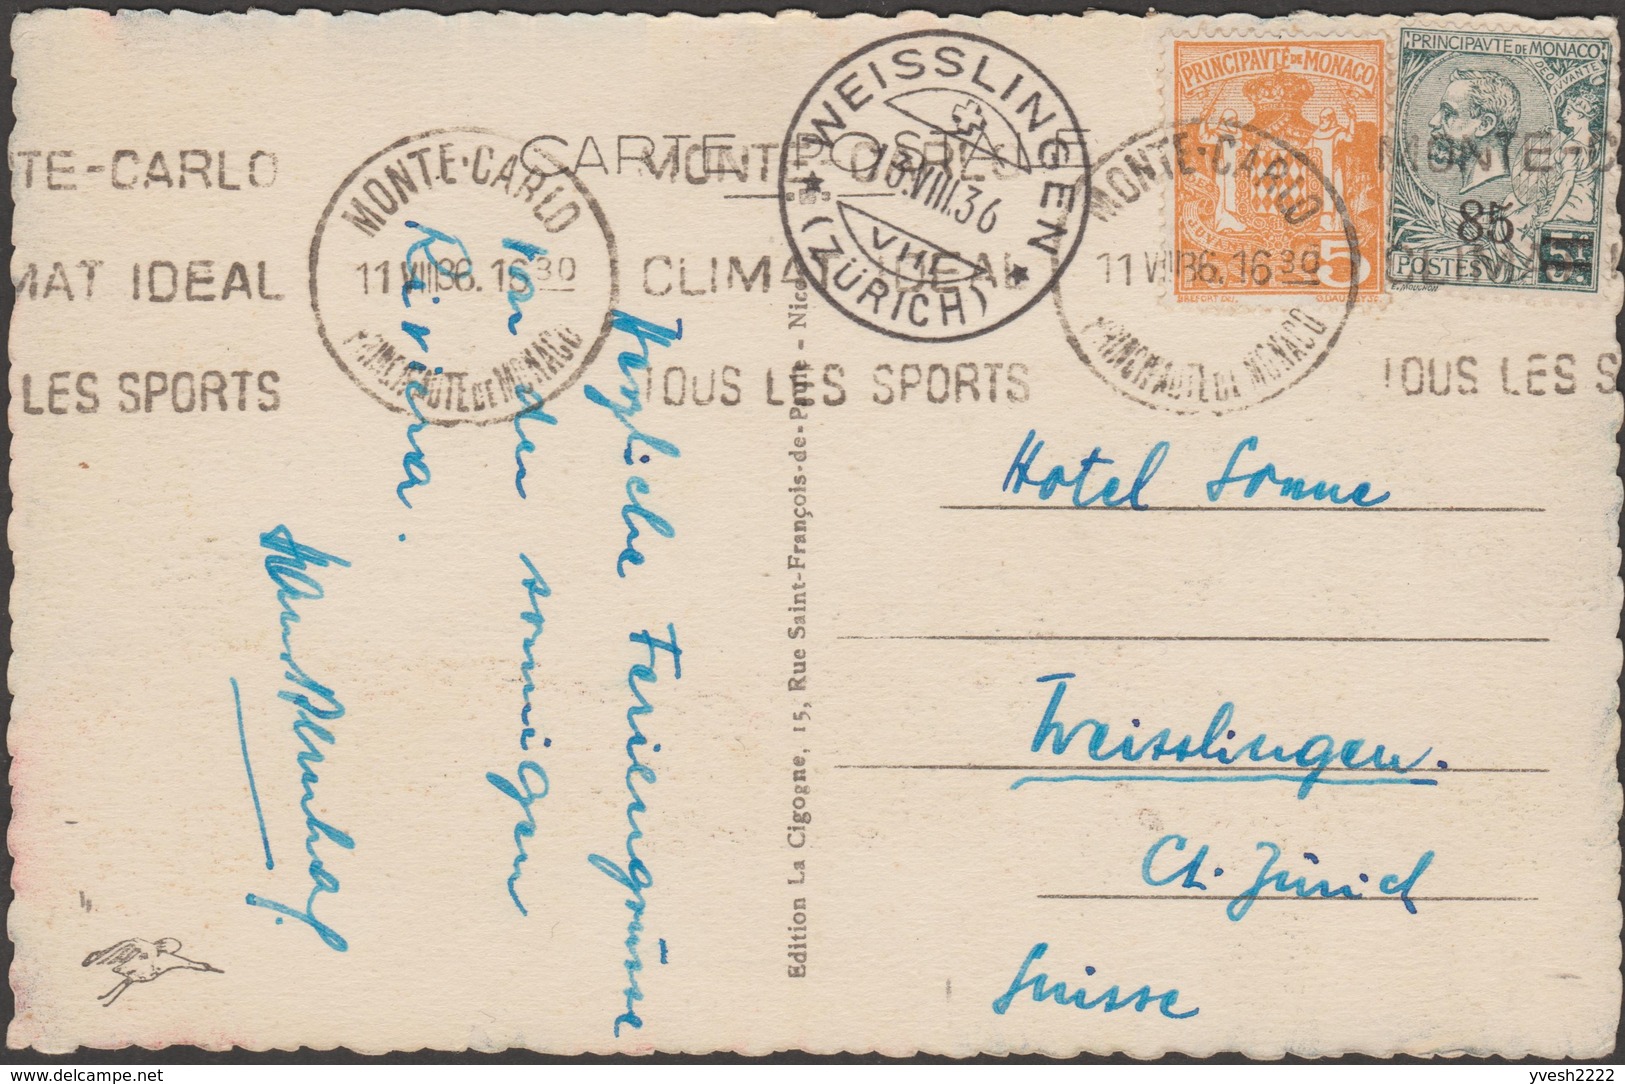 CARTE POSTALE
TE-CARLO
MAT IDEAL
LES SPORTS
MONTE-CARLO
11 VIII 36. 16 30
PRINCIPAUTE DE MONACO
MONTE-CARLO
CLIMAT IDEAL
TOUS LES SPORTS
WEISSLINGEN
13.VIII.36
VIII
(ZÜRICH)
MONTE-CARLO
11 VIII 36. 16 30
PRINCIPAUTE DE MONACO
MONTE-C
TOUS LES S
PRINCIPAVTÉ DE MONACO
5
PRINCIPAVTE DE MONACO
DEO JVVANTE
85
POSTES
E. MOUCHON
Herzliche Feriengrüsse
von der sonnigen
Riviera.
Edition La Cigogne, 15, Rue Saint-François-de-Paule - Nice
Hotel Sonne
Weisslingen.
Ct. Zürich
Suisse
yvesh2222